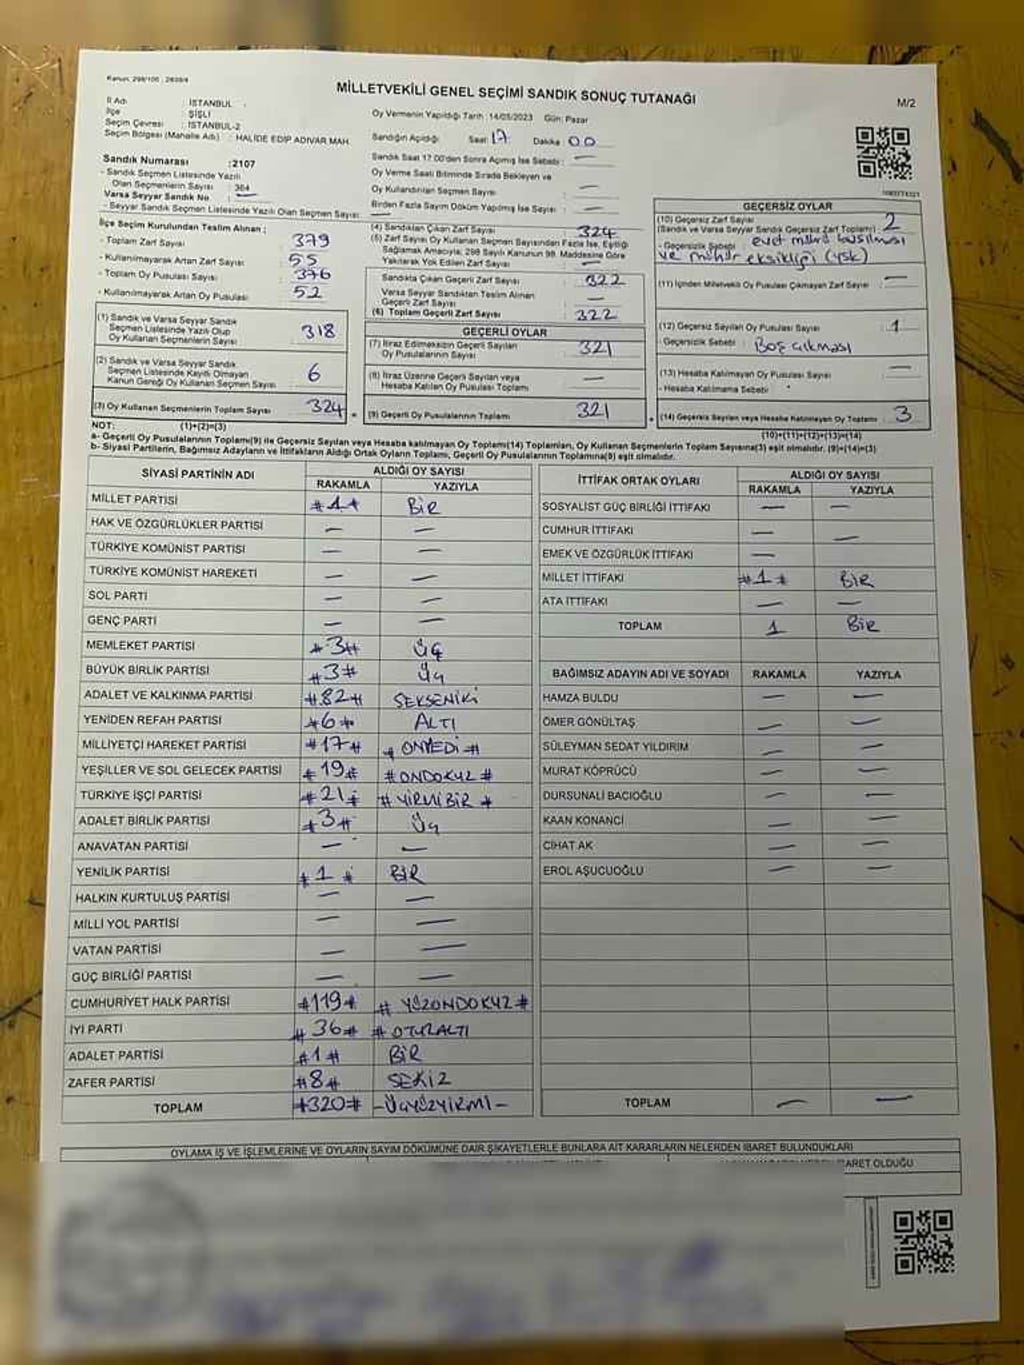 Kanun: 298/105 ; 2839/4
MİLLETVEKİLİ GENEL SEÇİMİ SANDIK SONUÇ TUTANAĞI
M/2
İl Adı : İSTANBUL
İlçe : ŞİŞLİ
Seçim Çevresi : İSTANBUL-2
Seçim Bölgesi (Mahalle Adı) : HALİDE EDİP ADIVAR MAH.
Oy Vermenin Yapıldığı Tarih : 14/05/2023 Gün: Pazar
Sandığın Açıldığı Saat 17 Dakika 00
Sandık Numarası : 2107
- Sandık Seçmen Listesinde Yazılı
Olan Seçmenlerin Sayısı : 364
Varsa Seyyar Sandık No —
- Seyyar Sandık Seçmen Listesinde Yazılı Olan Seçmen Sayısı: —
Sandık Saat 17.00'den Sonra Açılmış İse Sebebi : —
Oy Verme Saati Bitiminde Sırada Bekleyen ve
Oy Kullandırılan Seçmen Sayısı : —
Birden Fazla Sayım Döküm Yapılmış İse Sayısı : —
İlçe Seçim Kurulundan Teslim Alınan ;
- Toplam Zarf Sayısı : 379
- Kullanılmayarak Artan Zarf Sayısı : 55
- Toplam Oy Pusulası Sayısı : 376
- Kullanılmayarak Artan Oy Pusulası : 52
(1) Sandık ve Varsa Seyyar Sandık
Seçmen Listesinde Yazılı Olup
Oy Kullanan Seçmenlerin Sayısı : 318
(2) Sandık ve Varsa Seyyar Sandık
Seçmen Listesinde Kayıtlı Olmayan
Kanun Gereği Oy Kullanan Seçmen Sayısı : 6
(3) Oy Kullanan Seçmenlerin Toplam Sayısı 324 =
(4) Sandıktan Çıkan Zarf Sayısı : 324
(5) Zarf Sayısı Oy Kullanan Seçmen Sayısından Fazla İse, Eşitliği
Sağlamak Amacıyla; 298 Sayılı Kanunun 98. Maddesine Göre
Yakılarak Yok Edilen Zarf Sayısı : —
Sandıkta Çıkan Geçerli Zarf Sayısı : 322
Varsa Seyyar Sandıktan Teslim Alınan
Geçerli Zarf Sayısı : —
(6) Toplam Geçerli Zarf Sayısı : 322
GEÇERLİ OYLAR
(7) İtiraz Edilmeksizin Geçerli Sayılan
Oy Pusulalarının Sayısı : 321
(8) İtiraz Üzerine Geçerli Sayılan veya
Hesaba Katılan Oy Pusulaları Toplamı : —
(9) Geçerli Oy Pusulalarının Toplamı : 321 +
GEÇERSİZ OYLAR
(10) Geçersiz Zarf Sayısı 2
(Sandık ve Varsa Seyyar Sandık Geçersiz Zarf Toplamı) :
- Geçersizlik Sebebi : evet mührü basılması
ve mühür eksikliği (ysk)
(11) İçinden Milletvekili Oy Pusulası Çıkmayan Zarf Sayısı : —
(12) Geçersiz Sayılan Oy Pusulası Sayısı : 1
- Geçersizlik Sebebi : Boş çıkması
(13) Hesaba Katılmayan Oy Pusulası Sayısı : —
- Hesaba Katılmama Sebebi :
(14) Geçersiz Sayılan veya Hesaba Katılmayan Oy Toplamı : 3
NOT: (1)+(2)=(3) (10)+(11)+(12)+(13)=(14)
a- Geçerli Oy Pusulalarının Toplamı(9) ile Geçersiz Sayılan veya Hesaba katılmayan Oy Toplamı(14) Toplamları, Oy Kullanan Seçmenlerin Toplam Sayısına(3) eşit olmalıdır. (9)+(14)=(3)
b- Siyasi Partilerin, Bağımsız Adayların ve İttifakların Aldığı Ortak Oyların Toplamı, Geçerli Oy Pusulalarının Toplamına(9) eşit olmalıdır.
SİYASİ PARTİNİN ADI ALDIĞI OY SAYISI
RAKAMLA YAZIYLA
MİLLET PARTİSİ #1# BİR
HAK VE ÖZGÜRLÜKLER PARTİSİ — —
TÜRKİYE KOMÜNİST PARTİSİ — —
TÜRKİYE KOMÜNİST HAREKETİ — —
SOL PARTİ — —
GENÇ PARTİ — —
MEMLEKET PARTİSİ #3# ÜÇ
BÜYÜK BİRLİK PARTİSİ #3# Üç
ADALET VE KALKINMA PARTİSİ #82# SEKSENİKİ
YENİDEN REFAH PARTİSİ #6# ALTI
MİLLİYETÇİ HAREKET PARTİSİ #17# # ONYEDİ #
YEŞİLLER VE SOL GELECEK PARTİSİ #19# # ONDOKUZ #
TÜRKİYE İŞÇİ PARTİSİ #21# # YİRMİBİR #
ADALET BİRLİK PARTİSİ #3# Üç
ANAVATAN PARTİSİ — —
YENİLİK PARTİSİ #1# BİR
HALKIN KURTULUŞ PARTİSİ — —
MİLLİ YOL PARTİSİ — —
VATAN PARTİSİ — —
GÜÇ BİRLİĞİ PARTİSİ — —
CUMHURİYET HALK PARTİSİ #119# # YÜZONDOKUZ #
İYİ PARTİ #36# # OTUZALTI
ADALET PARTİSİ #1# BİR
ZAFER PARTİSİ #8# SEKİZ
TOPLAM #320# -ÜÇYÜZYİRMİ-
İTTİFAK ORTAK OYLARI ALDIĞI OY SAYISI
RAKAMLA YAZIYLA
SOSYALİST GÜÇ BİRLİĞİ İTTİFAKI — —
CUMHUR İTTİFAKI — —
EMEK VE ÖZGÜRLÜK İTTİFAKI —
MİLLET İTTİFAKI #1# BİR
ATA İTTİFAKI — —
TOPLAM 1 BİR
BAĞIMSIZ ADAYIN ADI VE SOYADI RAKAMLA YAZIYLA
HAMZA BULDU — —
ÖMER GÖNÜLTAŞ — —
SÜLEYMAN SEDAT YILDIRIM — —
MURAT KÖPRÜCÜ — —
DURSUNALİ BACIOĞLU — —
KAAN KONANCİ — —
CİHAT AK — —
EROL AŞUCUOĞLU — —
TOPLAM — —
OYLAMA İŞ VE İŞLEMLERİNE VE OYLARIN SAYIM DÖKÜMÜNE DAİR ŞİKAYETLERLE BUNLARA AİT KARARLARIN NELERDEN İBARET BULUNDUKLARI
OLDUĞU